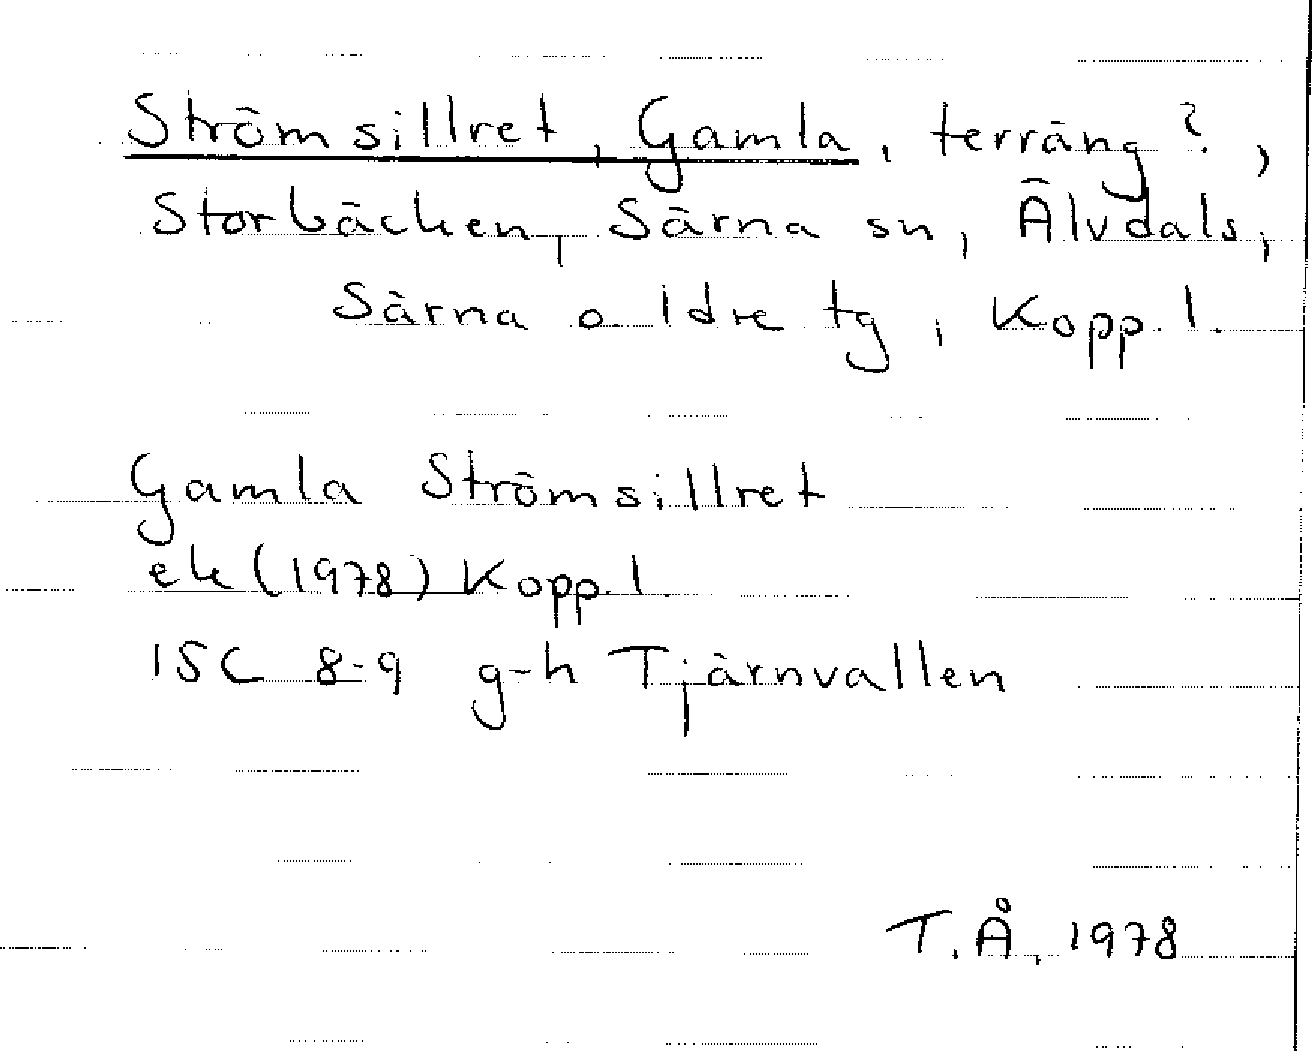 Strömsillret, Gamla, terräng?,
Storbäcken, Särna sn, Älvdals,
Särna o Idre tg, Kopp. l.
Gamla Strömsillret
ek (1978) Kopp. l.
15C 8-9 g-h Tjärnvallen
T.Å, 1978